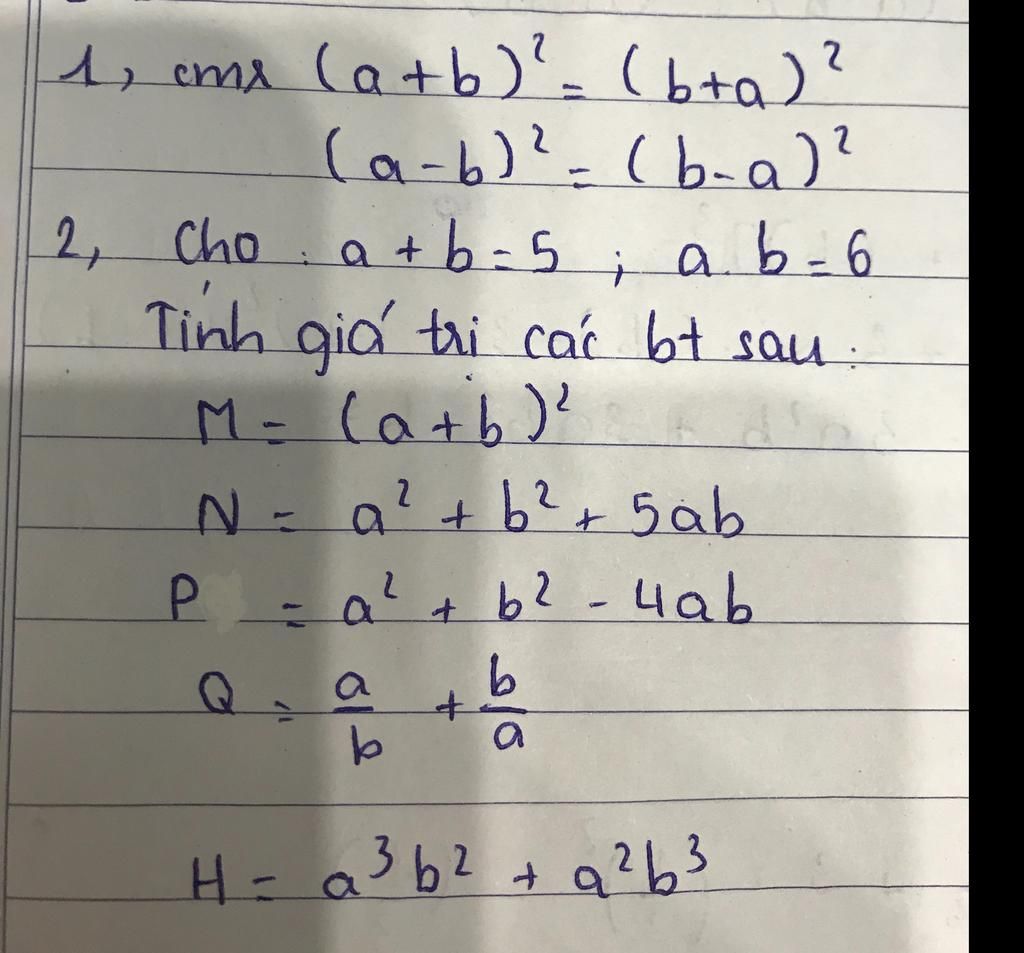 1, cmr (a+b)² = (b+a)²
(a-b)² = (b-a)²
2, Cho : a + b = 5 ; a . b = 6
Tính giá trị các bt sau :
M = (a+b)²
N = a² + b² + 5ab
P = a² + b² - 4ab
Q = a/b + b/a
H = a³b² + a²b³